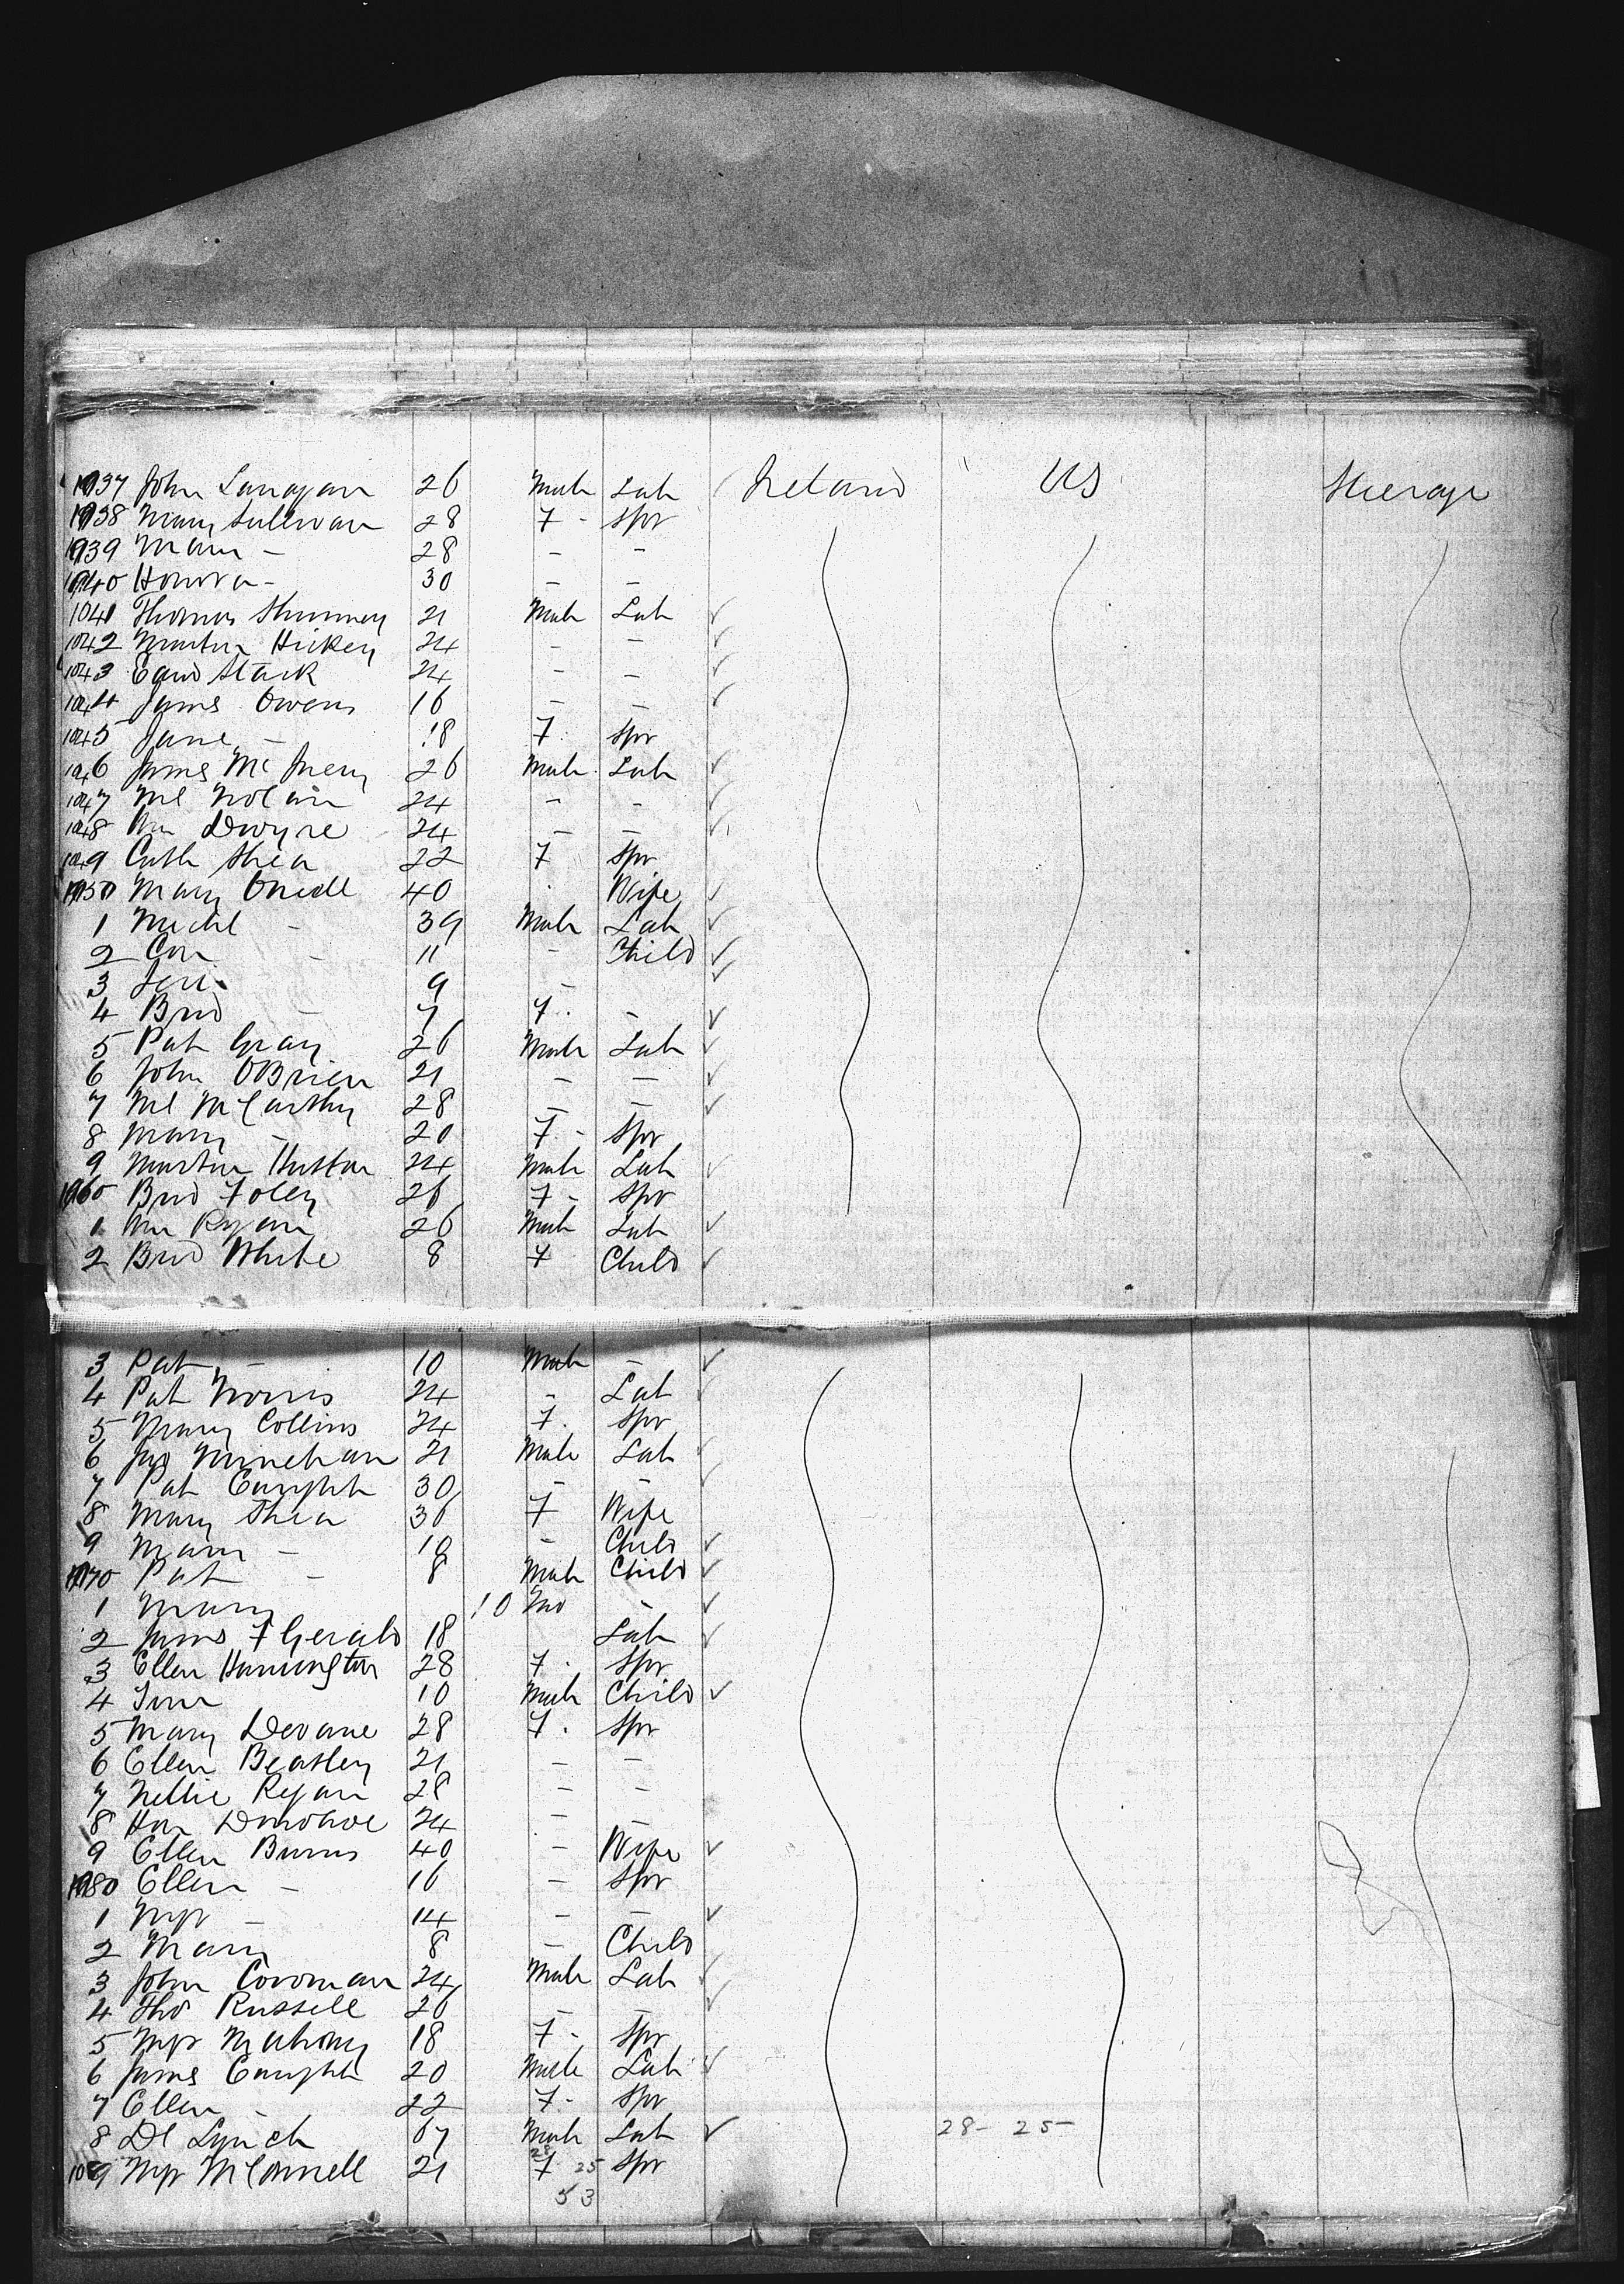 1037 John Lanagan 26 Male Lab Ireland US Steerage
1038 Mary Sullivan 28 F - Spr
1039 Mary - 28 - -
1040 Honora - 30 - -
1041 Thomas 21 Male Lab ✓
1042 Martin Hickey 24 - - ✓
1043 Edwd Stack 24 - - ✓
1044 James Owens 16 - - ✓
1045 Jane - 18 F Spr
1046 James McInery 26 Male Lab ✓
1047 Ml Nolan 24 - - ✓
1048 Wm Dwyre 24 - - ✓
1049 Cath Shea 22 F Spr
1050 Mary Oneill 40 Wife ✓
1 Michl - 39 Male Lab ✓
2 Con - 11 - Child ✓
3 Jerr 9 - ✓
4 Brid - 7 F - ✓
5 Pat Gray 26 Male Lab ✓
6 John OBrien 21 - - ✓
7 Ml McCarthy 28 - - ✓
8 Mary - 20 F - Spr
9 Martin Huston 24 Male Lab ✓
1060 Brid Foley 26 F - Spr
1 Wm Ryan 26 Male Lab ✓
2 Brid White 8 F Child ✓
3 Pat - 10 Male - ✓
4 Pat Norris 24 - Lab ✓
5 Mary Collins 24 F. Spr
6 Jas Minehan 21 Male Lab ✓
7 Pat Enright 30 - - ✓
8 Mary Shea 36 F Wife
9 Mary - 10 - Child ✓
1070 Pat - 8 Male Child ✓
1 Mary 10 Mo - ✓
2 James FGerald 18 Lab ✓
3 Ellen Hannington 28 F. Spr
4 10 Male Child ✓
5 Mary Devane 28 F. Spr
6 Ellen Beasley 21 - -
7 Nellie Ryan 28 - -
8 Hon Donohoe 24 - -
9 Ellen Burns 40 - Wife ✓
1080 Ellen - 16 - Spr
1 Mgr - 14 - - ✓
2 Mary 8 - Child
3 John 24 Male Lab ✓
4 Tho Russell 26 - - ✓
5 Mgr Mahony 18 F - Spr
6 James Enright 20 Male Lab ✓
7 Ellen - 22 F - Spr
8 Dl Lynch 67 Male Lab ✓ 28 - 25
1089 Mgr McConnell 21 F Spr
28 25
53